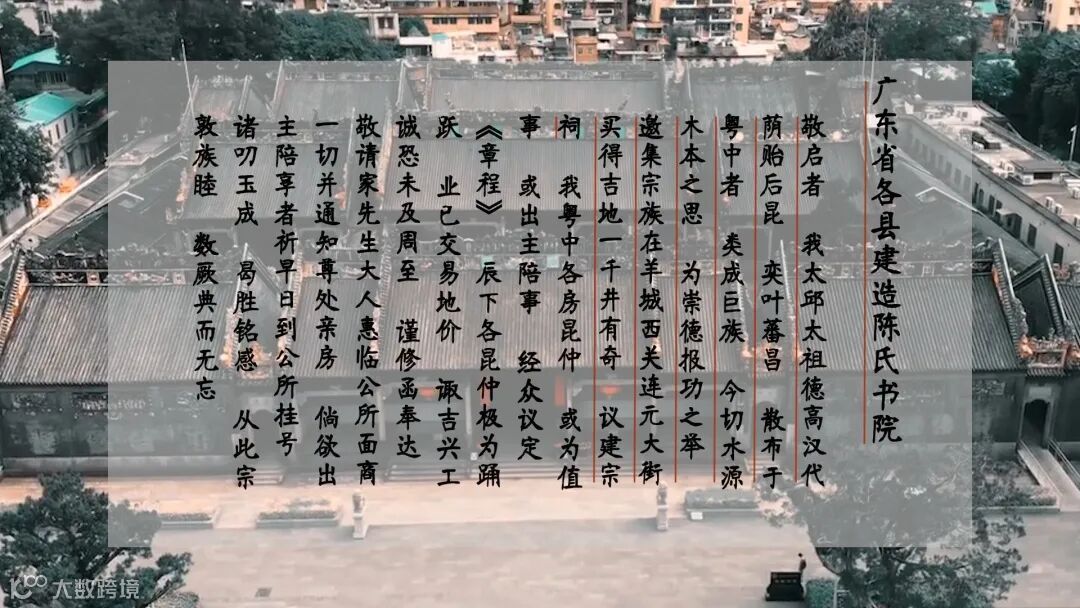 广东省各县建造陈氏书院
敬启者 我太邱太祖德高汉代
荫贻后昆 奕叶蕃昌 散布于
粤中者 类成巨族 今切水源
木本之思 为崇德报功之举
邀集宗族在羊城西关连元大街
买得吉地一千井有奇 议建宗
祠 我粤中各房昆仲 或为值
事 或出主陪事 经众议定
《章程》 辰下各昆仲极为踊
跃 业已交易地价 诹吉兴工
诚恐未及周至 谨修函奉达
敬请家先生大人惠临公所面商
一切并通知尊处亲房 倘欲出
主陪享者祈早日到公所挂号
诸叨玉成 曷胜铭感 从此宗
敦族睦 数厥典而无忘
10100 大数跨境